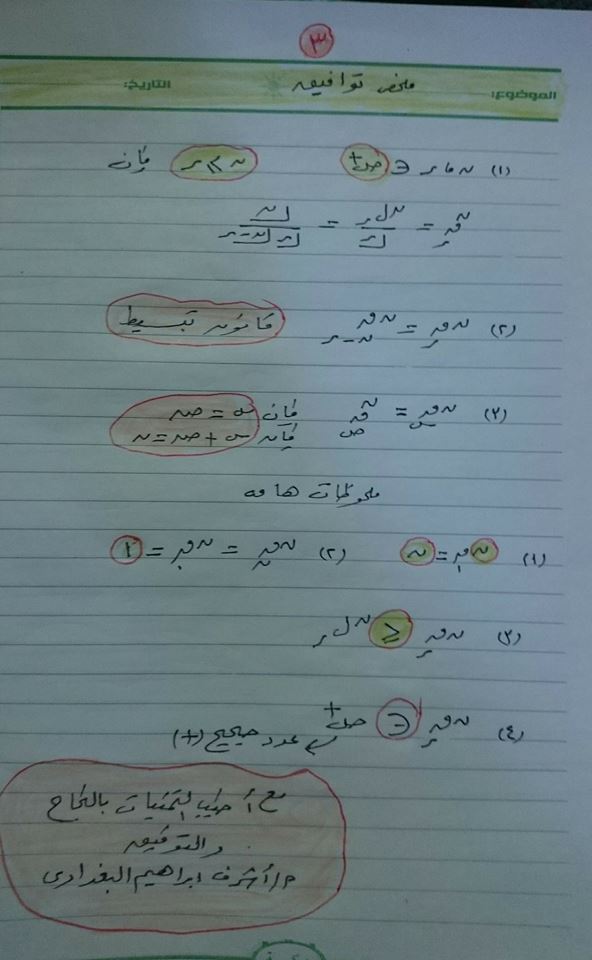 ٣
الموضوع: ملخص توافيق التاريخ:
(١) ن، ر ∈ ص+ ن ≥ ر فإن
نقر = نلر / ⌊ر = ⌊ن / ⌊ر ⌊ن-ر
(٢) نقر = نقن-ر قانون تبسيط
(٣) نقس = نقص فإن س = ص
فإن س + ص = ن
ملحوظات هامه
(١) نق١ = ن (٢) نقن = نق٠ = ١
(٣) نقر ≤ نلر
(٤) نقر ∈ ص+
عدد صحيح (+)
مع أطيب التمنيات بالنجاح
والتوفيق
م/أشرف ابراهيم البغدادى